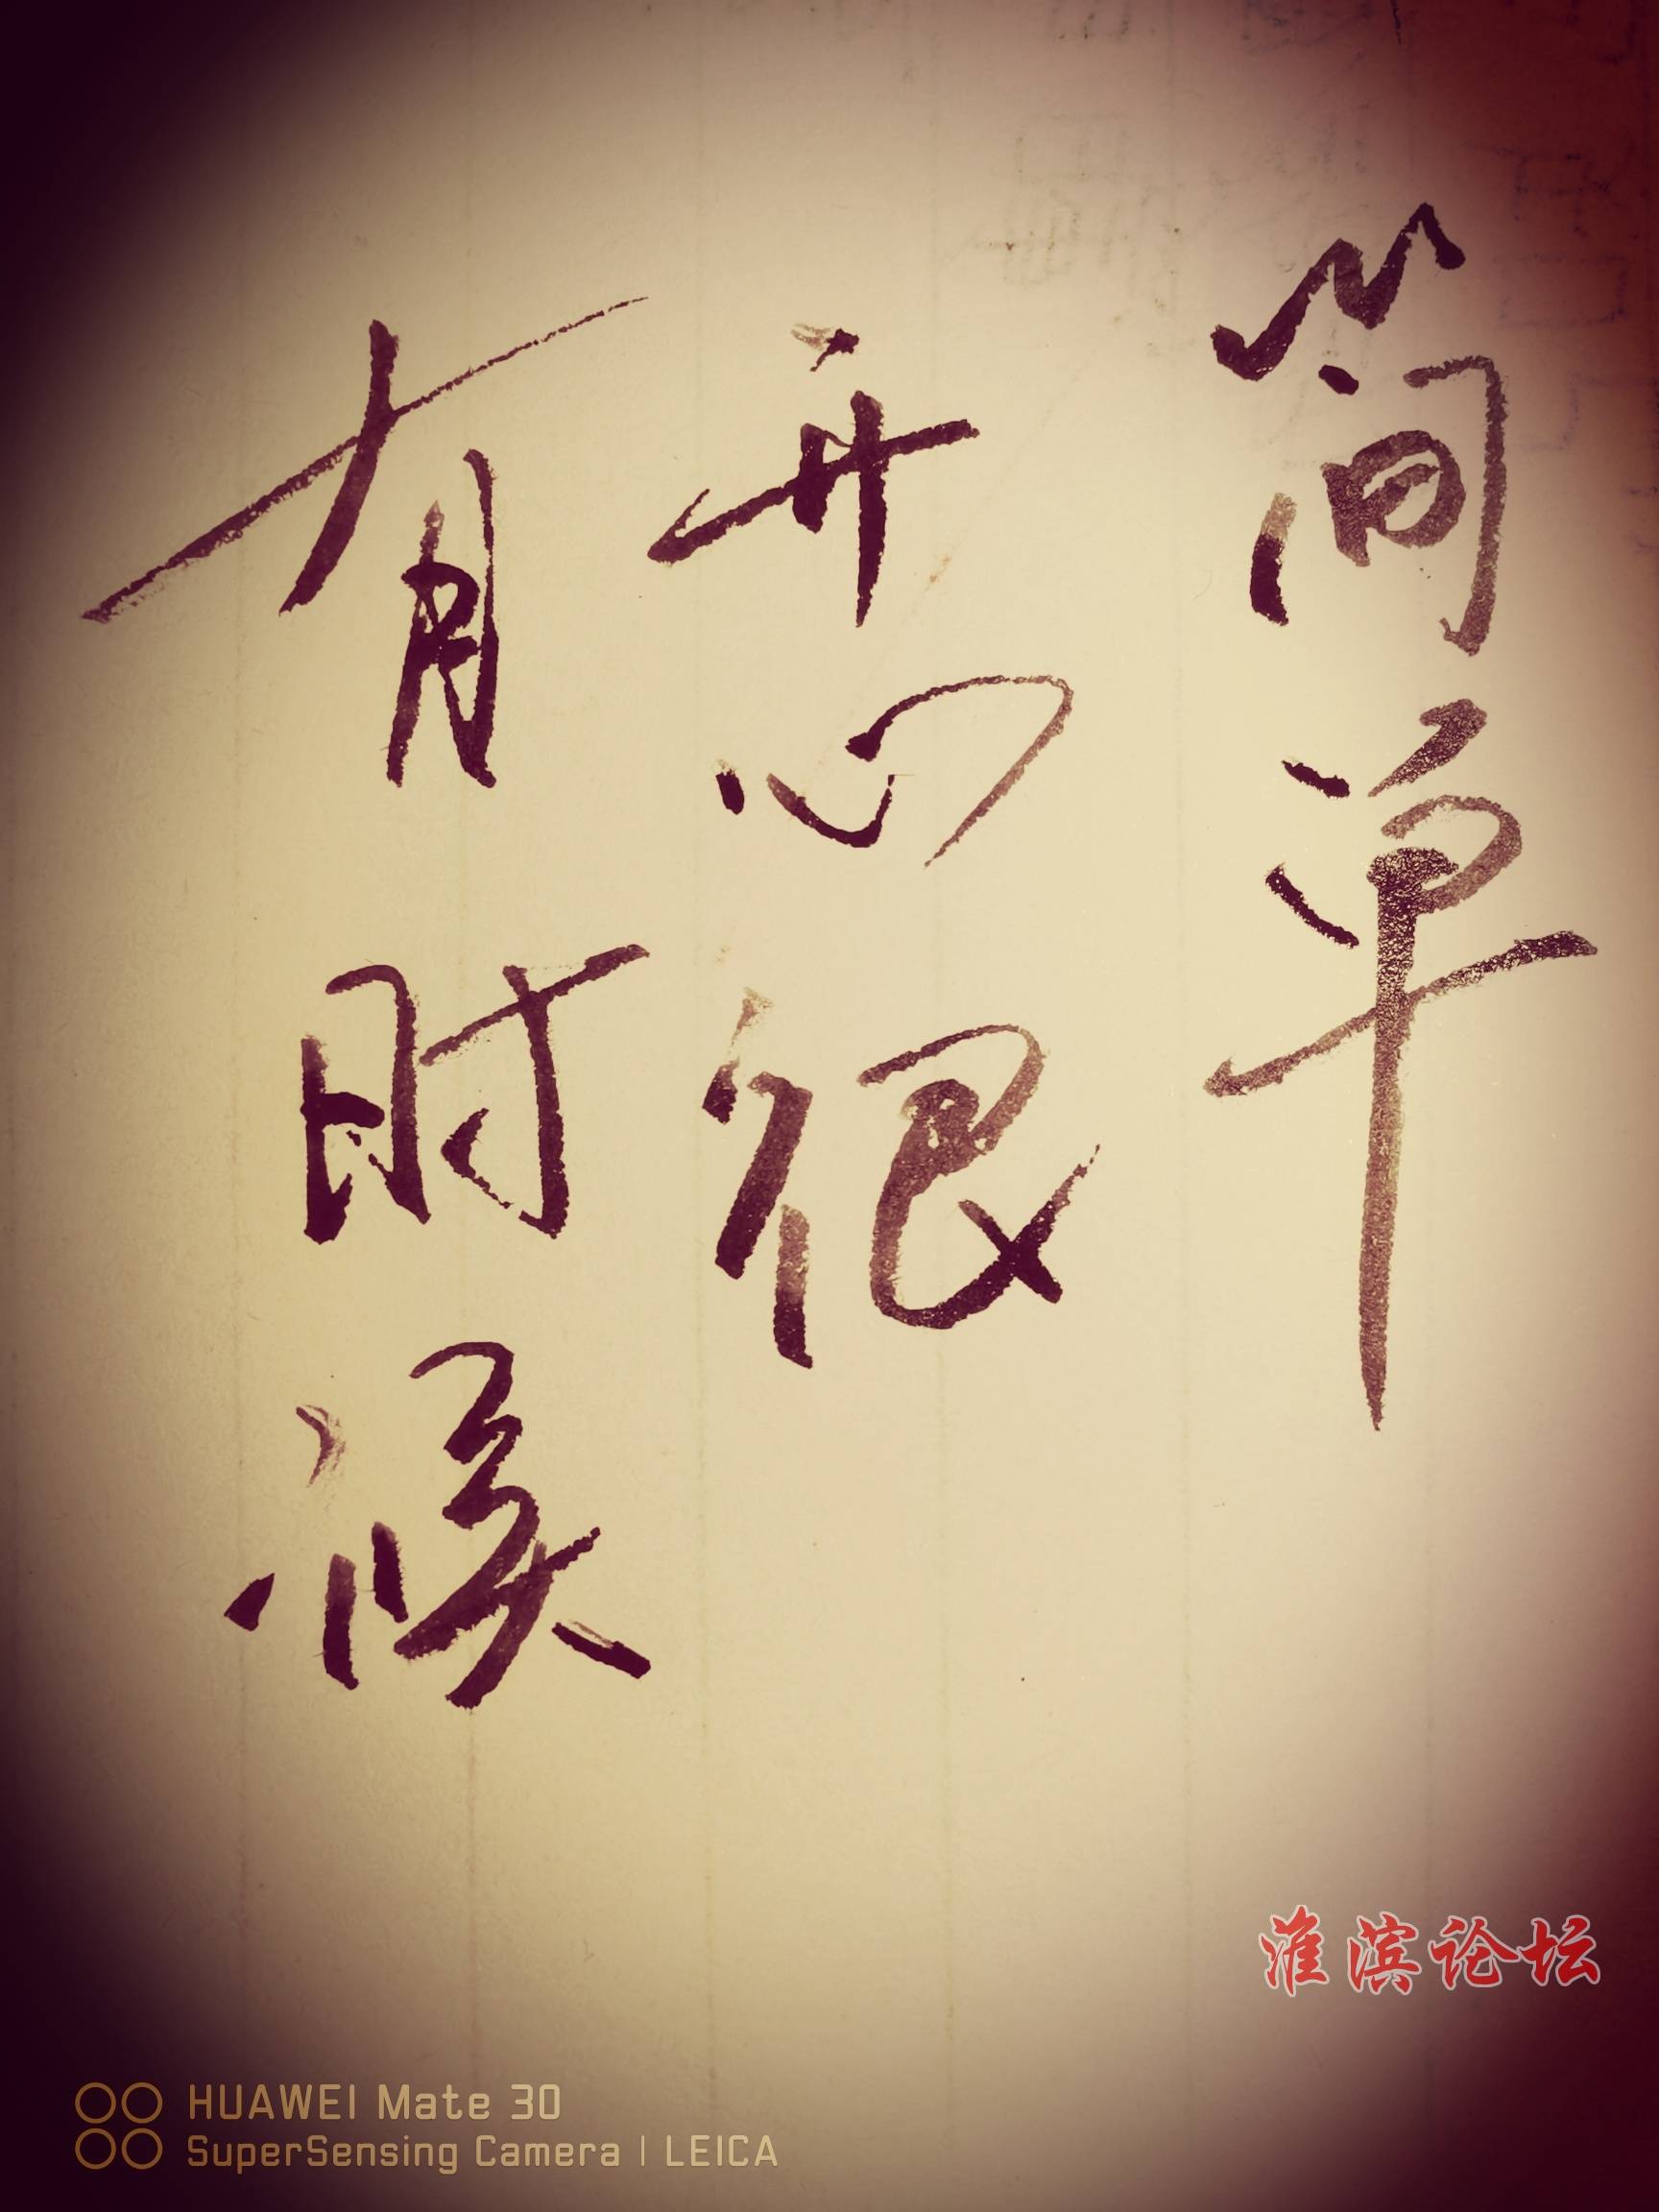 有时候
开心很
简单
淮滨论坛
HUAWEI Mate 30
SuperSensing Camera | LEICA